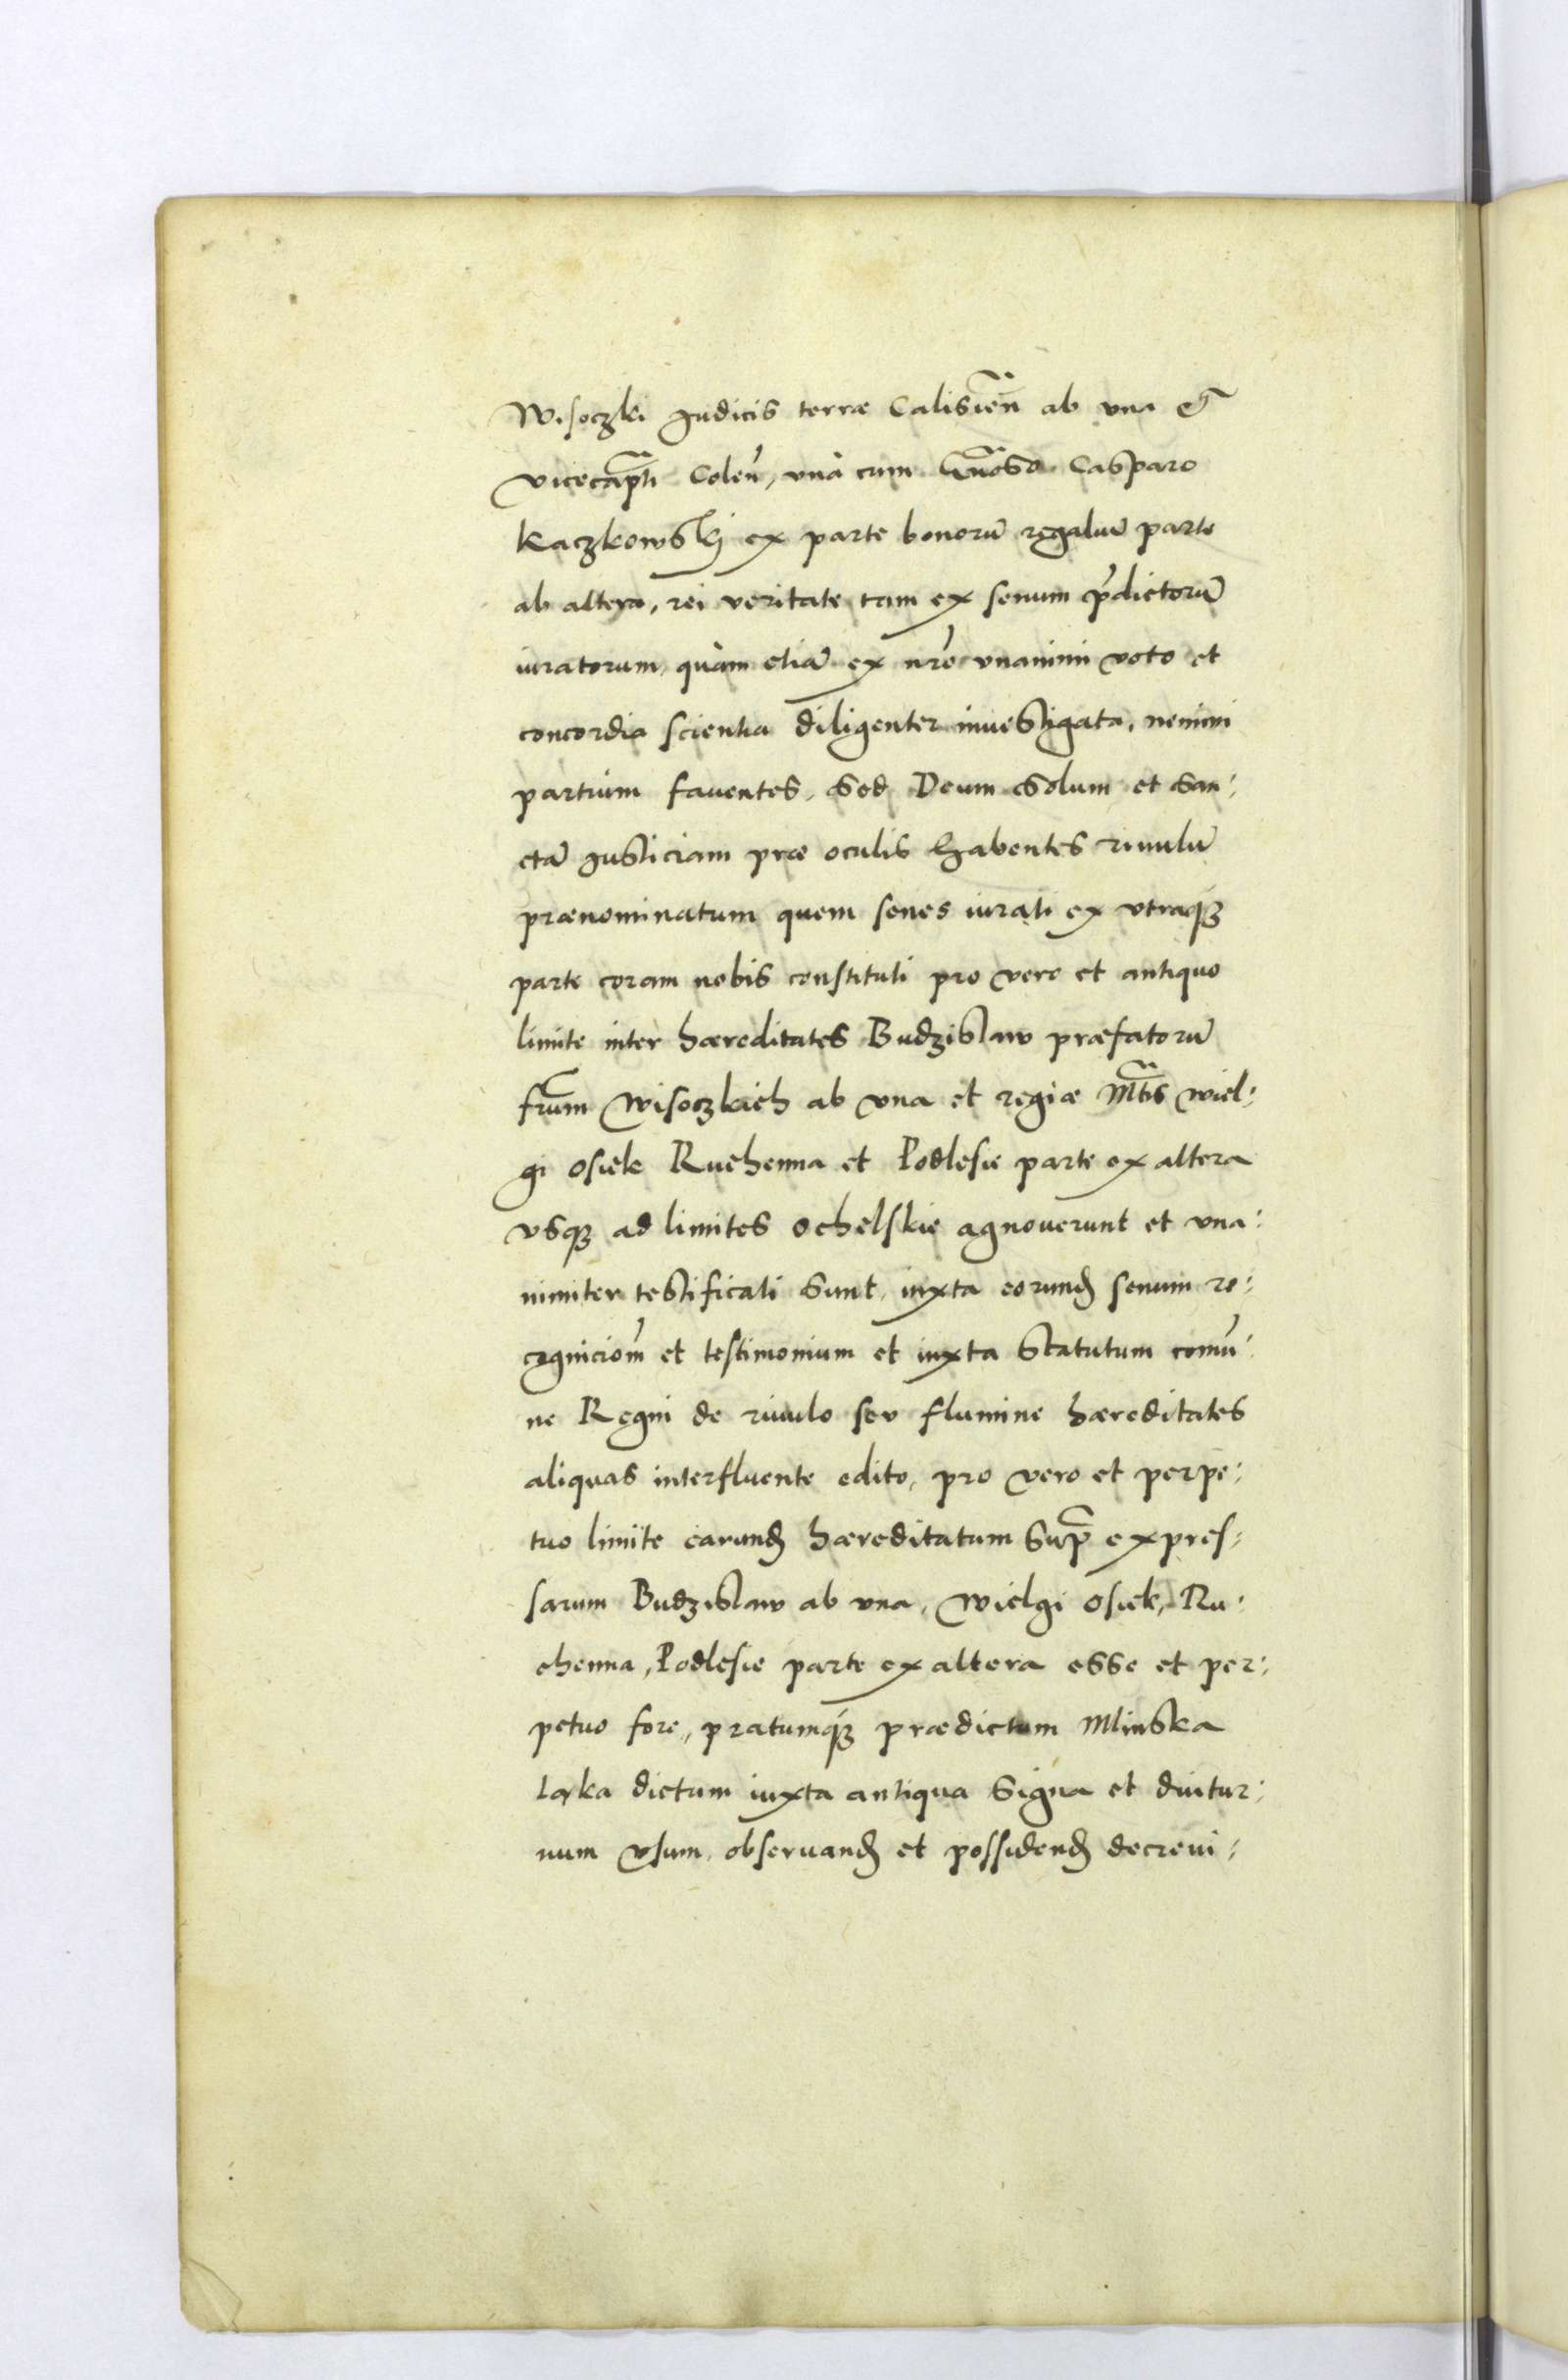 Wisoczki Judicis terræ Calisień ab vna et
vicecap̃ti Coleñ, vnà cum Gñoso Casparo
Kaczkowskj ex parte bonorū regaliū parte
ab altera, rei veritate tam ex senum p̃dictorū
iuratorum, quàm etiā ex nr̃o vnanimi voto et
concordia scientia diligenter inuestigata, nemini
partium fauentes, sed Deum solum et san:
ctā Justiciam præ oculis habentes riuulū
prænominatum quem senes iurati ex vtraq₃
parte coram nobis constituti pro vero et antiquo
limite inter hæreditates Budzislaw præfatorū
fr̃um Wisoczkich ab vna et regiæ Mt̃is Wiel:
gi Osiek Ruchenna et Podlesie parte ex altera
vsq₃ ad limites Ochelskie agnouerunt et vna:
nimiter testificati sunt, iuxta eorund̃ senum re:
cognicioñ et testimonium et iuxta statutum com̃u:
ne Regni de riuulo seu flumine hæreditates
aliquas interfluente edito, pro vero et perpe:
tuo limite earund̃ hæreditatum sup̃ expres:
sarum Budzislaw ab vna, Wielgi Osiek, Ru:
chenna, Podlesie parte ex altera esse et per:
petuo fore, pratumq₃ prædictum Mlinska
Laka dictum iuxta antiqua signa et diutur:
num vsum, obseruand̃ et possidend̃ decreui: